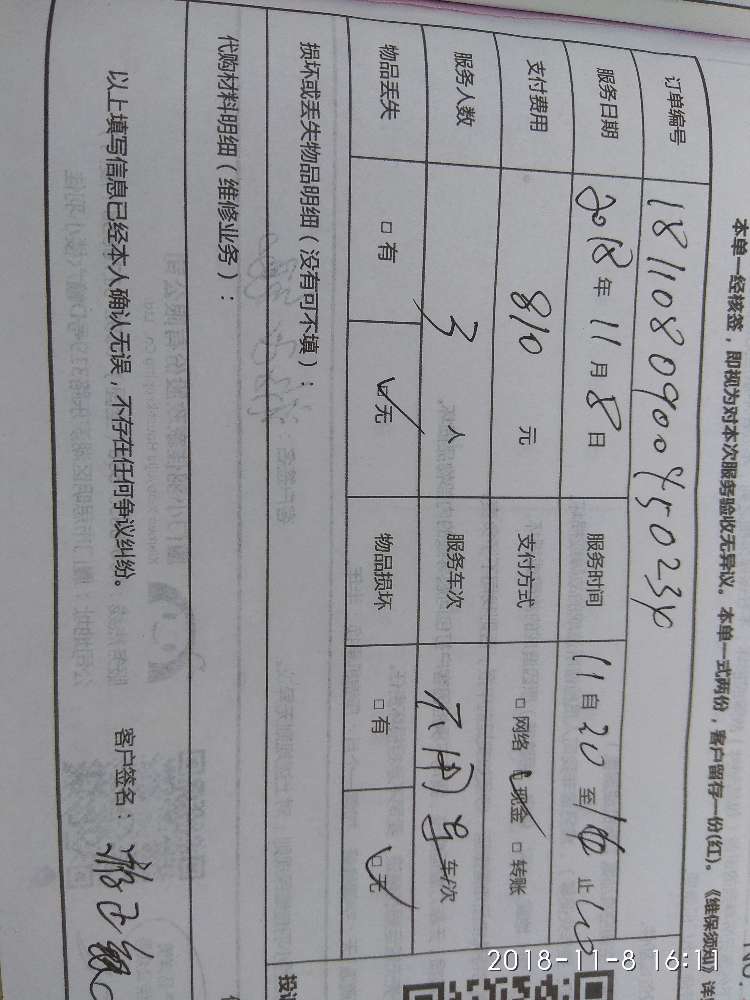 本单一经核签，即视为对本次服务验收无异议。本单一式两份，客户留存一份(红)。《维保须知》详
订单编号
服务日期 2018年 11月 8日 服务时间 11自20至 止
支付费用 810 元 支付方式 □ 网络 □ 现金 □ 转账
服务人数 3 人 服务车次 不用 车/次
物品丢失 □ 有 □ 无 物品损坏 □ 有 □ 无
损坏或丢失物品明细（没有可不填）：
代购材料明细（维修业务）：
以上填写信息已经本人确认无误，不存在任何争议纠纷。 客户签名：
2018-11-8 16:11